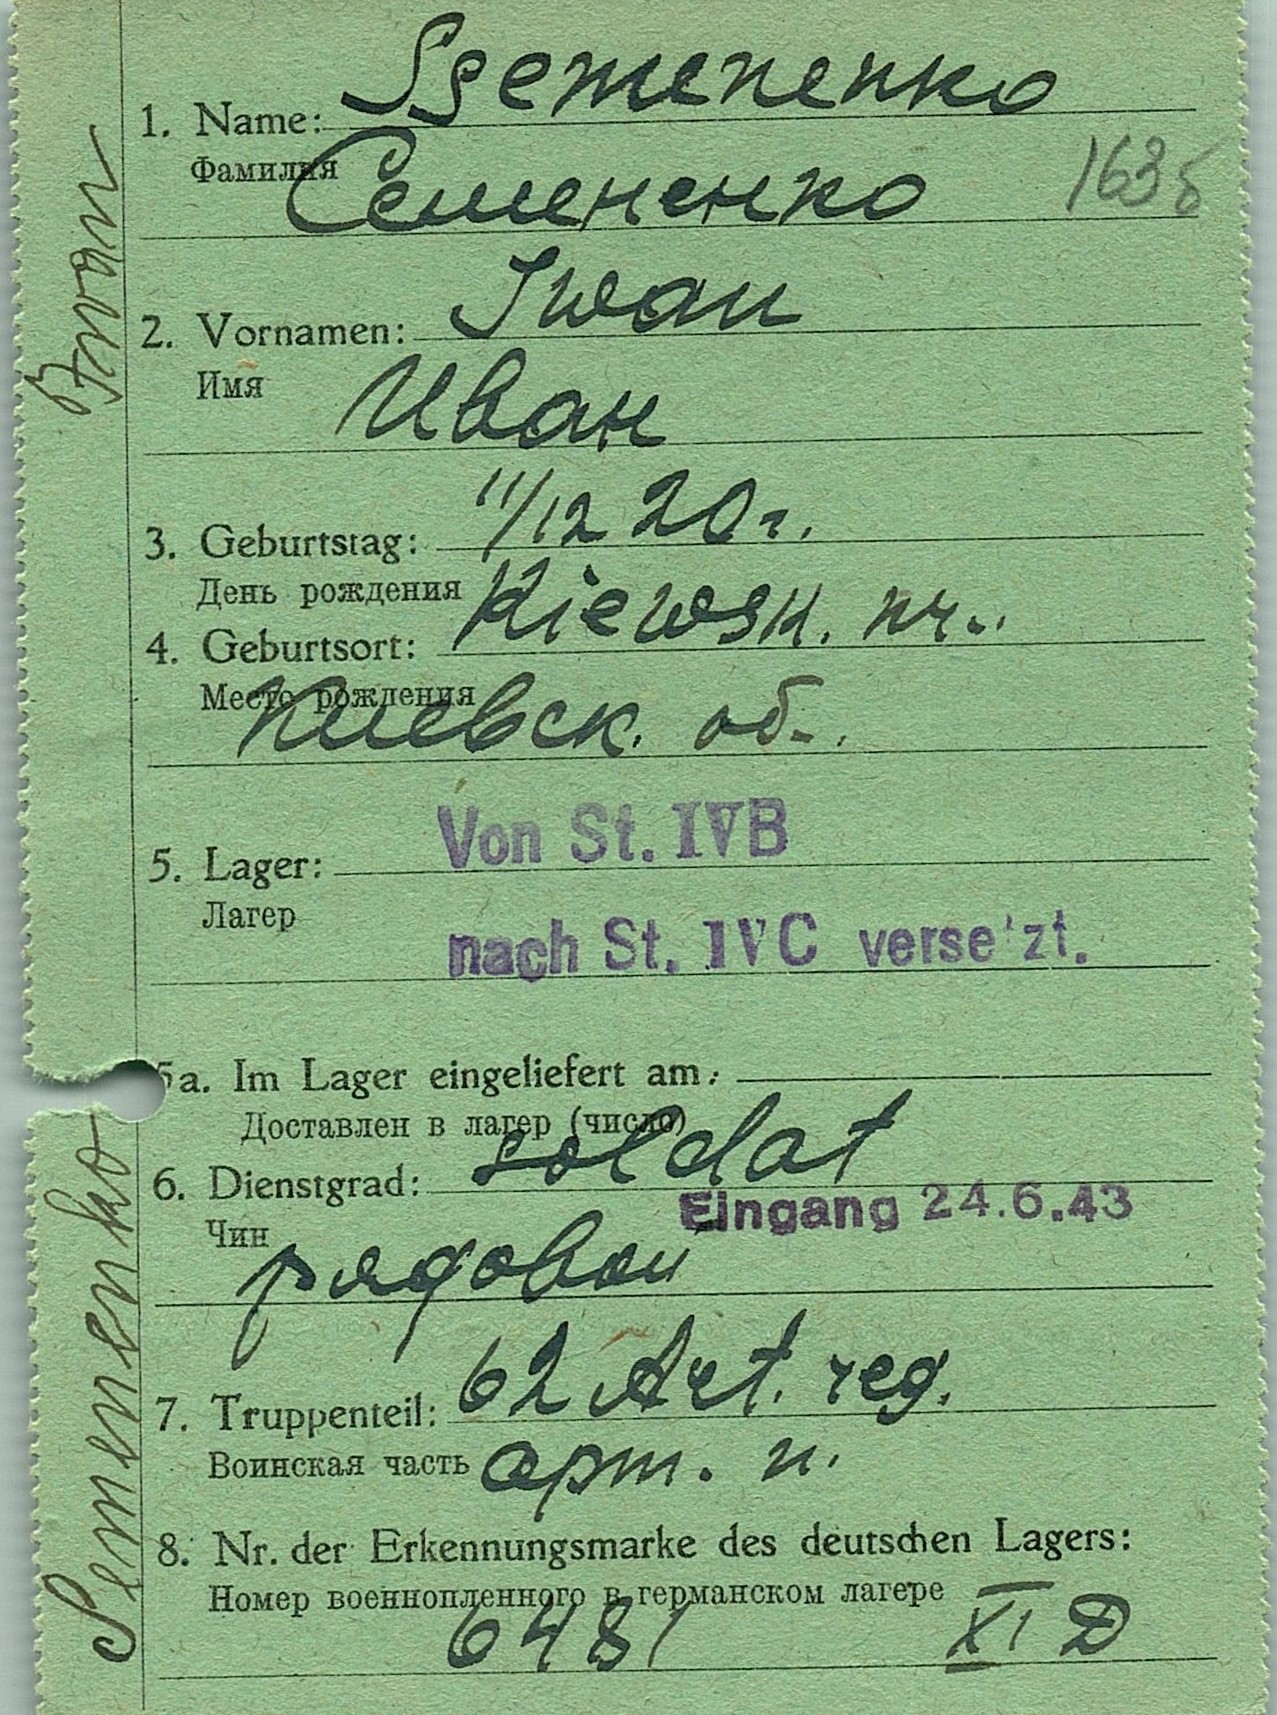 Ssemenenko
1. Name:
Фамилия
Семененко
163
Iwan
2. Vornamen:
Имя
Иван
11/12 20 г.
3. Geburtstag:
День рождения
Kiewsk.
4. Geburtsort:
Место рождения
Киевск. об.
Von St. IVB
5. Lager:
Лагер
nach St. IVC verse'zt.
5a. Im Lager eingeliefert am:
Доставлен в лагер (число)
soldat
6. Dienstgrad:
Eingang 24.6.43
Чин
рядовой
62 Art. reg.
7. Truppenteil:
Воинская часть арт. п.
8. Nr. der Erkennungsmarke des deutschen Lagers:
Номер военнопленного в германском лагере
6481 XI D
Semenenko Iwan